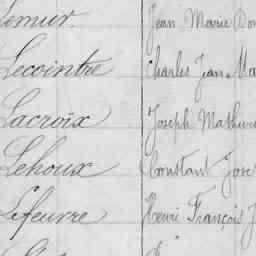 Lemur. Jean Marie
Lecointre Charles Jean Ma
Lacroix Joseph Mathuri
Lehoux Constant Jose
Lefeuvre Henri François J